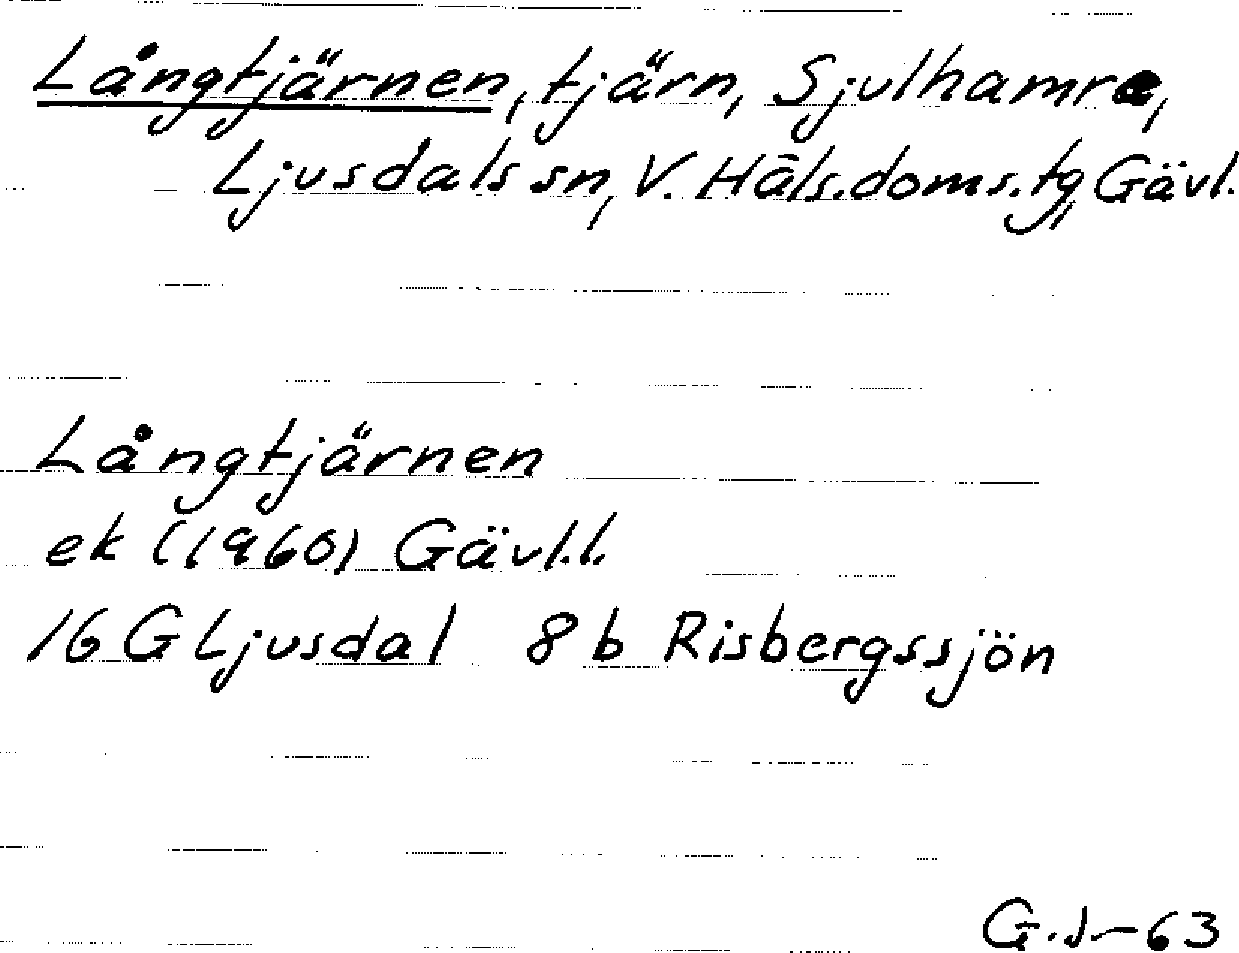 Långtjärnen, tjärn, Sjulhamre,
Ljusdals sn, V. Häls. doms. tg, Gävl.
Långtjärnen
ek (1960) Gävl.l.
16 G Ljusdal 8 b Risbergssjön
G.J-63